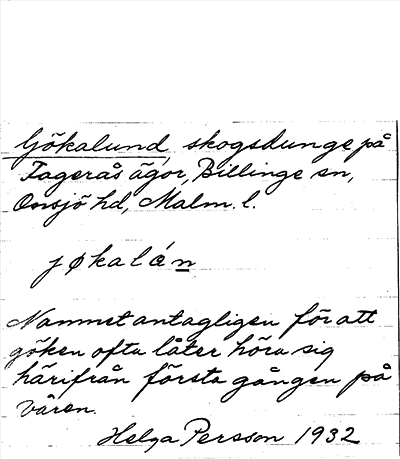 Gökalund, skogsdunge på
Fagerås ägor, Billinge sn,
Onsjö hd, Malm. l.
jøkalán
Namnet antagligen för att
göken ofta låter höra sig
härifrån första gången på
våren.
Helga Persson 1932